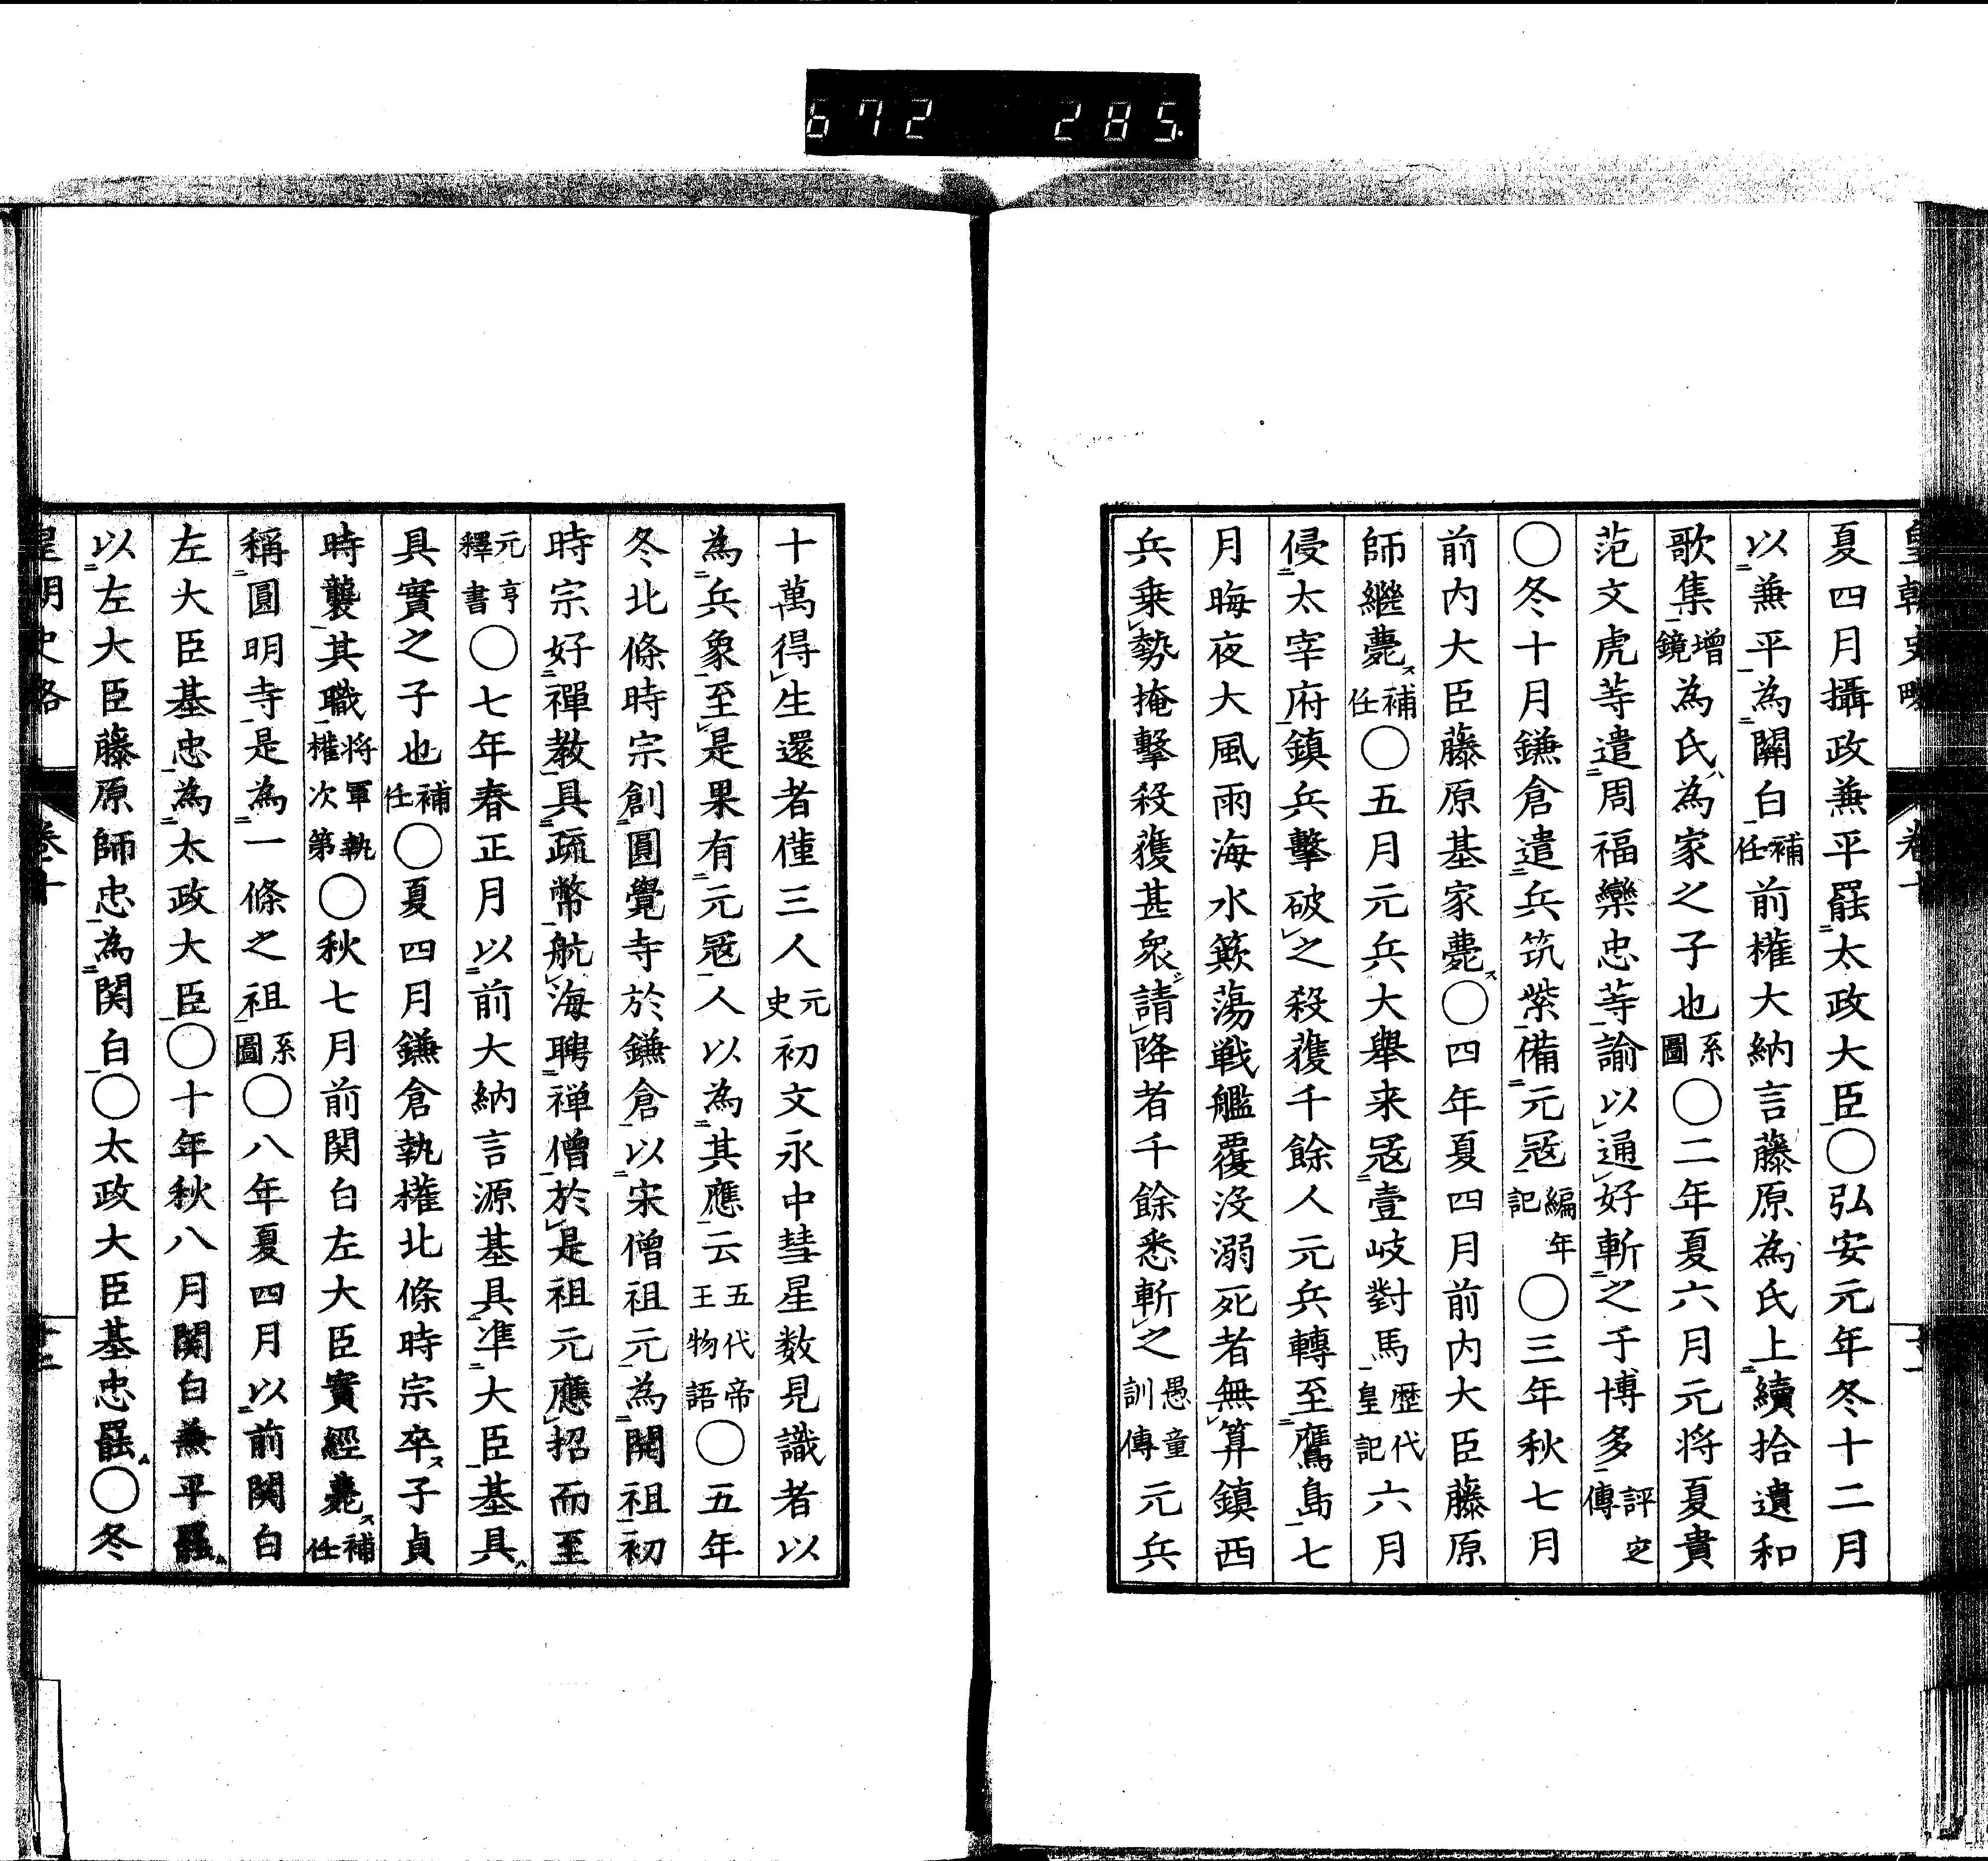 672 285.
皇朝史略 卷十
夏四月攝政兼平罷太政大臣〇弘安元年冬十二月
以兼平為關白補任前權大納言藤原為氏上續拾遺和
歌集增鏡為氏為家之子也系圖〇二年夏六月元将夏貴
范文虎等遣周福欒忠等諭以通好斬之于博多評定傳
〇冬十月鎌倉遣兵筑紫備元冦編年記〇三年秋七月
前內大臣藤原基家薨〇四年夏四月前内大臣藤原
師繼薨補任〇五月元兵大舉来冦壹岐對馬歷代皇記六月
侵太宰府鎮兵擊破之殺獲千餘人元兵轉至鷹島七
月晦夜大風雨海水簸蕩戦艦覆没溺死者無算鎮西
兵乗勢掩擊殺獲甚衆請降者千餘悉斬之愚童訓傳元兵
十萬得生還者僅三人元史初文永中彗星数見識者以
為兵象至是果有元冦人以為其應云五代帝王物語〇五年
冬北條時宗創圓覺寺於鎌倉以宋僧祖元為開祖初
時宗好禪教具疏幣航海聘禅僧於是祖元應招而至
元亨釋書〇七年春正月以前大納言源基具準大臣基具
具實之子也補任〇夏四月鎌倉執權北條時宗卒子貞
時襲其職将軍執權次第〇秋七月前関白左大臣實經薨補任
稱圓明寺是為一條之祖系圖〇八年夏四月以前関白
左大臣基忠為太政大臣〇十年秋八月関白兼平罷
以左大臣藤原師忠為関白〇太政大臣基忠罷〇冬
皇朝史略 卷十